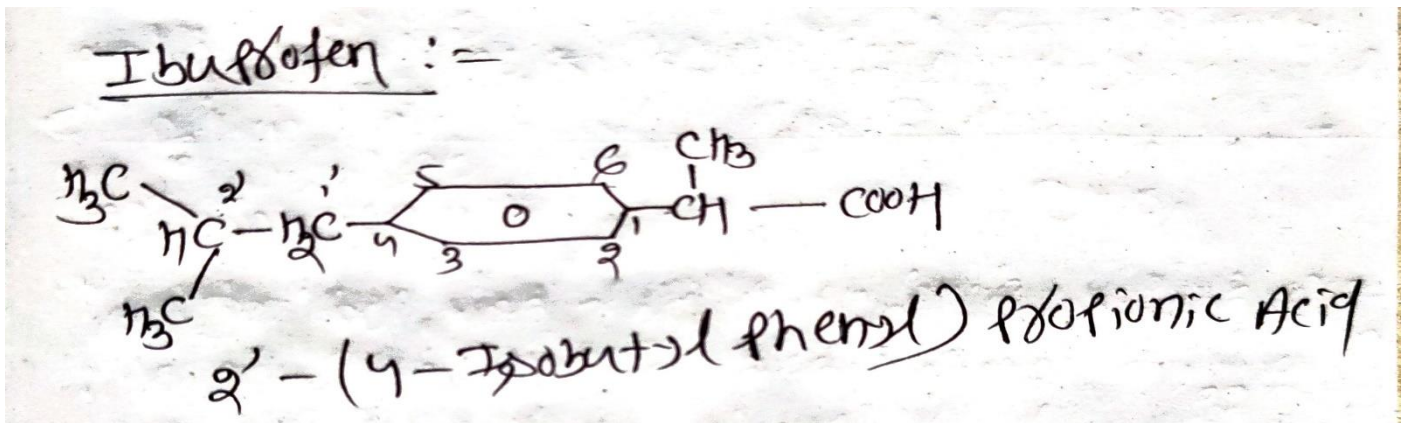 Ibuprofen :=
5 6 CH3
H3C 2' 1'
HC-H2C 4 3 O 2 1 CH - COOH
H3C
2' - (4-Isobutyl phenyl) propionic Acid